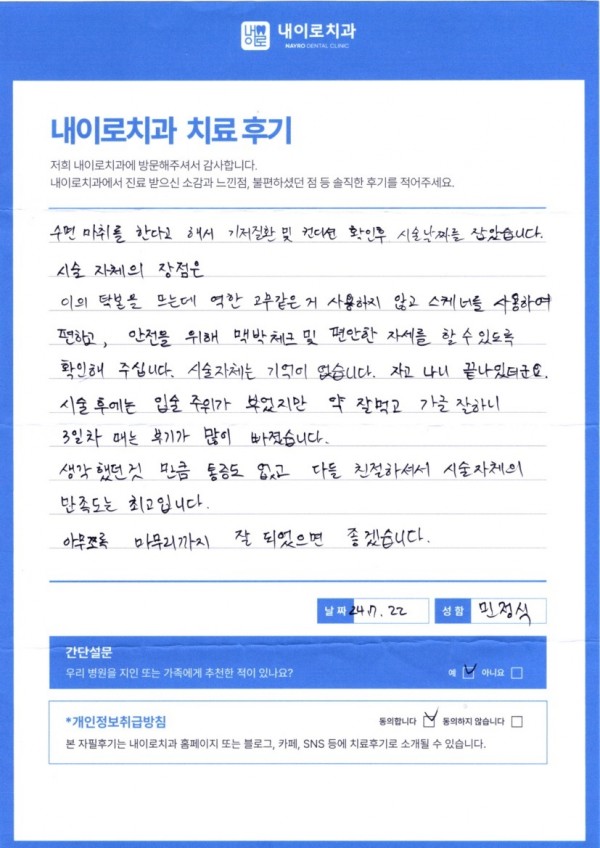 내이로치과
NAYRO DENTAL CLINIC
내이로치과 치료 후기
저희 내이로치과에 방문해주셔서 감사합니다.
내이로치과에서 진료 받으신 소감과 느낀점, 불편하셨던 점 등 솔직한 후기를 적어주세요.
수면 마취를 한다고 해서 기저질환 및 컨디션 확인후 시술날짜를 잡았습니다.
시술 자체의 장점은
이의 탁본을 뜨는데 역한 고무같은 거 사용하지 않고 스케너를 사용하여
편하고, 안전을 위해 맥박체크 및 편안한 자세를 할 수 있도록
확인해 주십니다. 시술자체는 기억이 없습니다. 자고 나니 끝나있더군요.
시술 후에는 입술 주위가 부었지만 약 잘먹고 가글 잘하니
3일차 때는 붓기가 많이 빠졌습니다.
생각 했던것 만큼 통증도 없고 다들 친절하셔서 시술자체의
만족도는 최고입니다.
아무쪼록 마무리까지 잘 되었으면 좋겠습니다.
날짜 24.7.22 성함 민정식
간단설문
우리 병원을 지인 또는 가족에게 추천한 적이 있나요? 예 아니요
*개인정보취급방침 동의합니다 동의하지 않습니다
본 자필후기는 내이로치과 홈페이지 또는 블로그, 카페, SNS 등에 치료후기로 소개될 수 있습니다.